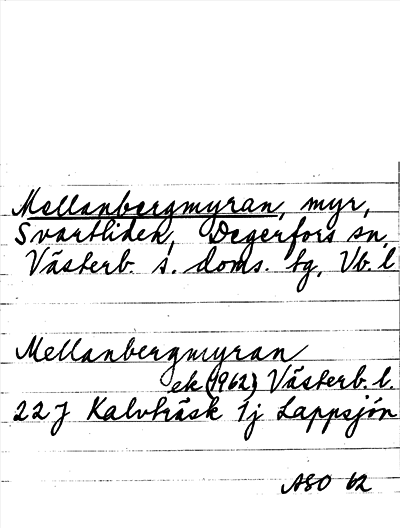 Mellanbergmyran, myr,
Svartliden, Degerfors sn,
Västerb. s. doms. tg, Vb. l.
Mellanbergmyran
ek (1962) Västerb. l.
22 J Kalvträsk 1j Lappsjön
ASO 62